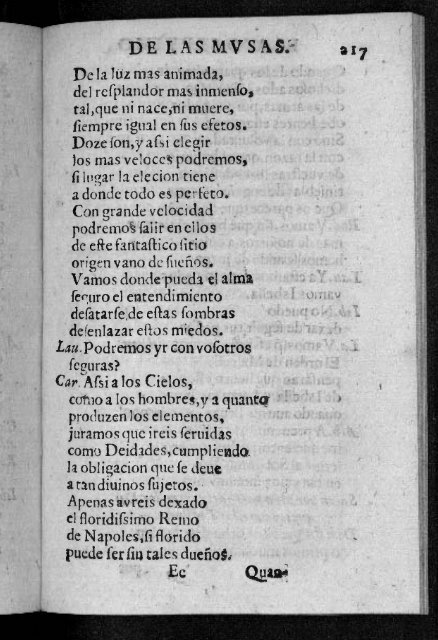 DE LAS MVSAS. 217
De la luz mas animada,
del resplandor mas inmenso,
tal, que ni nace, ni muere,
siempre igual en sus efetos.
Doze son, y assi elegir
los mas veloces podremos,
si lugar la elecion tiene
a donde todo es perfeto.
Con grande velocidad
podremos salir en ellos
de este fantastico sitio
origen vano de sueños.
Vamos donde pueda el alma
seguro el entendimiento
desatarse, de estas sombras
desenlazar estos miedos.
Lau. Podremos yr con vosotros
seguras?
Car. Assi a los Cielos,
como a los hombres, y a quanto
produzen los elementos,
juramos que ireis seruidas
como Deidades, cumpliendo
la obligacion que se deue
a tan diuinos sujetos.
Apenas avreis dexado
el floridissimo Reino
de Napoles, si florido
puede ser sin tales dueños.
Ee Quan-